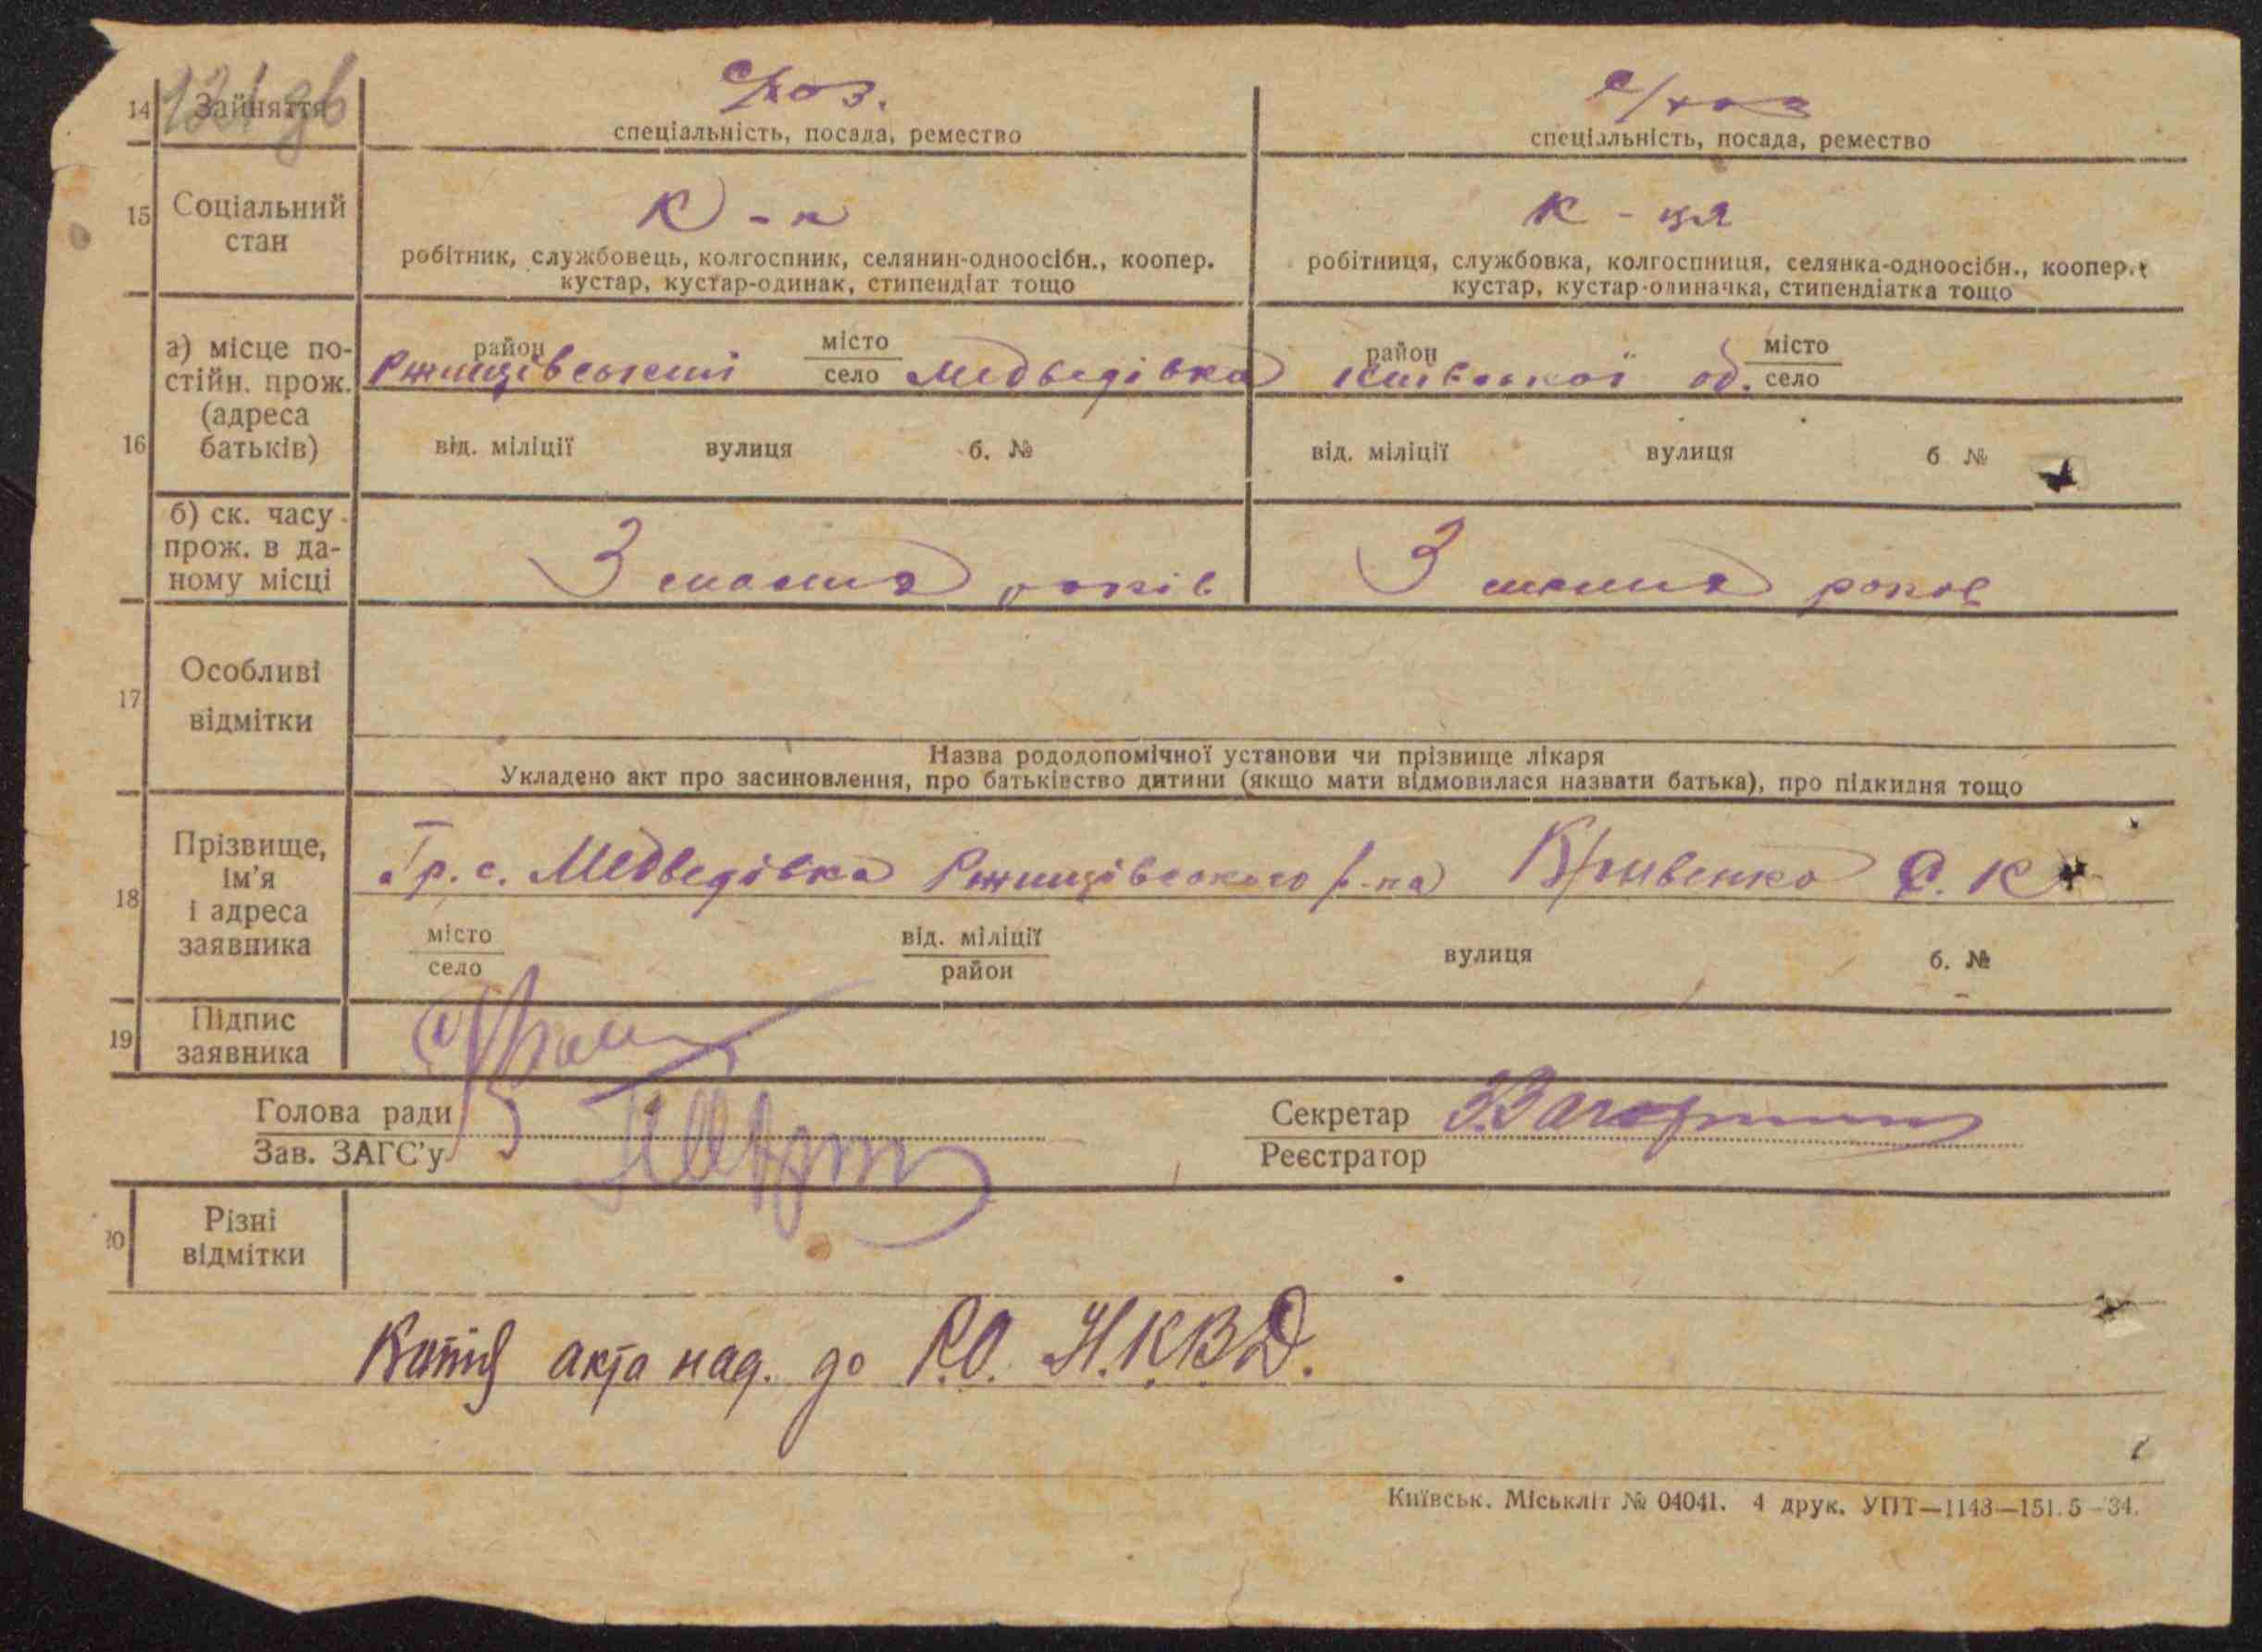 14 Зайняття с/хоз. с/хоз
спеціальність, посада, ремество спеціальність, посада, ремество
15 Соціальний стан К - к К - ця
робітник, службовець, колгоспник, селянин-одноосібн., коопер. кустар, кустар-одинак, стипендіат тощо
робітниця, службовка, колгоспниця, селянка-одноосібн., коопер. кустар, кустар-одиначка, стипендіатка тощо
16 а) місце постійн. прож. (адреса батьків)
район Ржищівський місто село Медведівка район Київської об. місто село
від. міліції вулиця б. № від. міліції вулиця б №
б) ск. часу прож. в даному місці
З малих років З малих років
17 Особливі відмітки
Назва рододопомічної установи чи прізвище лікаря
Укладено акт про засиновлення, про батьківство дитини (якщо мати відмовилася назвати батька), про підкидня тощо
18 Прізвище, ім'я і адреса заявника
Гр. с. Медведівка Ржищівського р-на Кривенко С. К
місто село від. міліції район вулиця б. №
19 Підпис заявника
Голова ради Секретар
Зав. ЗАГС'у Реєстратор
20 Різні відмітки
Копія акта над. до Р.О. Н.К.В.Д.
Київськ. Міськліт № 04041. 4 друк. УПТ—1143—151.5—34.